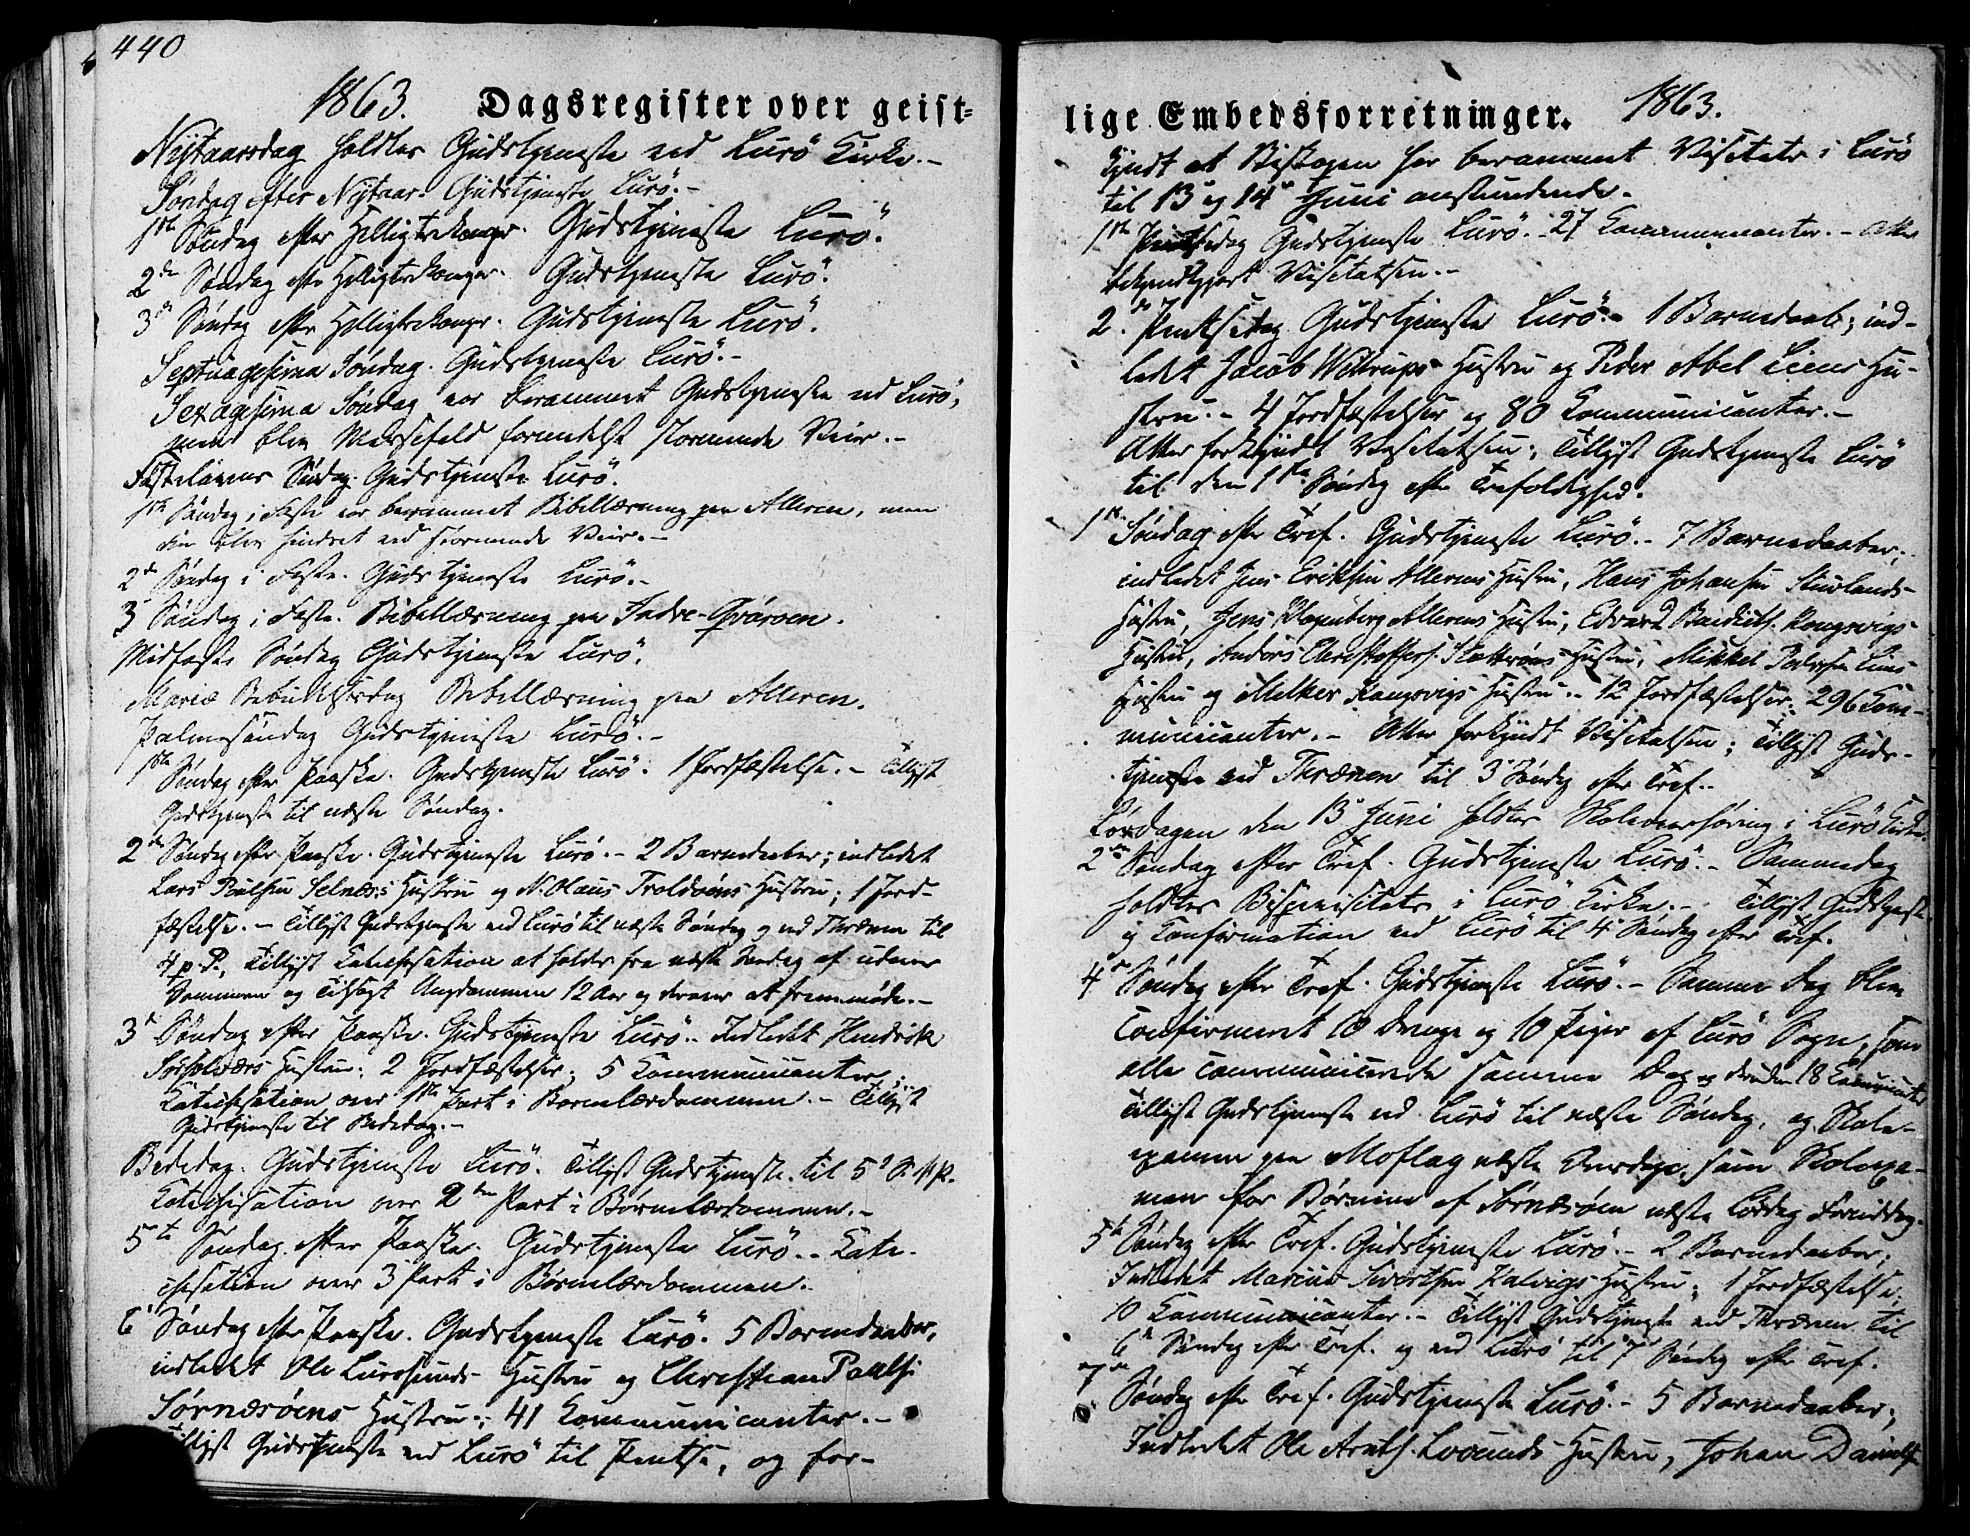 440
1863. Dagsregister over geist-
Nytaarsdag holdtes Gudstjeneste ved Lurö Kirke.-
Søndag efter Nytaar. Gudstjeneste Lurö.-
1ste Søndag efter Helligtrekonger. Gudstjeneste Lurö.
2den Søndag efter Helligtrekonger. Gudstjeneste Lurö.
3die Søndag efter Helligtrekonger. Gudstjeneste Lurö.
Septuagesima Søndag. Gudstjeneste Lurö.-
Sexagesima Søndag var berammet Gudstjeneste ved Lurö,
men blev Messefald formedelst stormende Veir.-
Fastelavens Søndag. Gudstjeneste Lurö.
1ste Søndag i Faste var berammet Bibellæsning paa Alleren, men
den blev hindret ved stormende Veir.-
2den Søndag i Faste. Gudstjeneste Lurö.-
3die Søndag i Faste. Bibellæsning paa Indre-Qvarøen.
Midfaste Søndag Gudstjeneste Lurö.
Mariæ Bebudelsesdag Bibellæsning paa Alleren.
Palmesøndag Gudstjeneste Lurö.-
1ste Søndag efter Paaske. Gudstjeneste Lurö. 1 Jordfæstelse.- Tillyst
Gudstjeneste til næste Søndag.
2den Søndag efter Paaske. Gudstjeneste Lurö.- 2 Barnedaaber; indledet
Lars Paulsen Selnæss Hustru og N. Olaus Troldøens Hustru; 1 Jord-
fæstelse.- Tillyst Gudstjeneste ved Lurö til næste Søndag og ved Thrænen til
4 p. P., Tillyst Catechisation at holdes fra næste Søndag af udover
Sommeren og Tilsagt Ungdommen 12 Aar og derover at fremmøde.-
3die Søndag efter Paaske. Gudstjeneste Lurö.- Indledet Hendrik
Hustru; 2 Jordfæstelser; 5 Communicanter;
Katechisation over 1ste Part i Børnelærdommen.- Tillyst
Gudstjeneste til Bededag.-
Bededag. Gudstjeneste Lurö. Tillyst Gudstjeneste til 5te S. p. P.
Catechisation over 2den Part i Børnelærdommen.-
5te Søndag efter Paaske. Gudstjeneste Lurö.- Cate-
chisation over 3 Part i Børnelærdommen.
6te Søndag efter Paaske. Gudstjeneste Lurö. 5 Barnedaaber,
indledet Ole Lurosunds Hustru og Christian Pauls.
Sørnæsøens Hustru; 41 Communicanter.-
Tillyst Gudstjeneste ved Lurö til Pentse, og for-
lige Embedsforretninger. 1863.
kyndt at Biskopen har berammet Visitats i Lurö
til 13 og 14de Juni anstundende.
1ste Pentsedag Gudstjeneste Lurö.- 27 Communicanter.- Atter
bekjendtgjort Visitatsen.-
2. Pentsedag Gudstjeneste Lurö.- 1 Barnedaab; ind-
ledet Jacob Wittrups Hustru og Peder Abel Liens Hu-
stru.- 4 Jordfæstelser og 80 Communicanter.-
Atter forkyndt Visitatsen; Tillyst Gudstjeneste Lurö
til den 1ste Søndag efter Trefoldighed.
1ste Søndag efter Tref. Gudstjeneste Lurö.- 7 Barnedaaber;
indledet Jens Eriksen Allerens Hustru, Hans Johansen Sturlands-
Hustru, Jens Allerens Hustru, Edvard Kongsvigs
Hustru, Anders Christoffers. Hustru, Mikkel Pedersen Liens
Hustru og Melker Kongsvigs Hustru.- 12 Jordfæstelser; 296 Com-
municanter.- Atter forkyndt Visitatsen; Tillyst Guds-
tjeneste ved Thrænen til 3die Søndag efter Tref.-
Lørdagen den 13de Juni holdtes Skoleoverhøring i Lurö Kirke.
2den Søndag efter Tref. Gudstjeneste Lurö.- Sammedag
holdtes Bispevisitats i Lurö Kirke.- Tillyst Gudstjeneste
og Confirmation ved Lurö til 4de Søndag efter Tref.
4de Søndag efter Tref. Gudstjeneste Lurö.- Samme Dag blev
Confirmeret 10 Drenge og 10 Piger af Lurö Sogn, som
alle communicerede samme Dag og desuden 18 Communicanter
Tillyst Gudstjeneste ved Lurö til næste Søndag, og Skole-
examen paa Moflag næste Onsdag, samt Skoleexa-
men for Børnene af Sørnæsøen næste Lørdag Formiddag.
5te Søndag efter Tref. Gudstjeneste Lurö.- 2 Barnedaaber;
Indledet Marius Sivertsen Kalvigs Hustru; 1 Jordfæstelse;
10 Communicanter.- Tillyst Gudstjeneste ved Thrænen til
6te Søndag efter Tref. og ved Lurö til 7 Søndag efter Tref.
7de Søndag efter Tref. Gudstjeneste Lurö.- 5 Barnedaaber;
Indledet Ole Arnts. Lovunds Hustru, Johan Daniels.